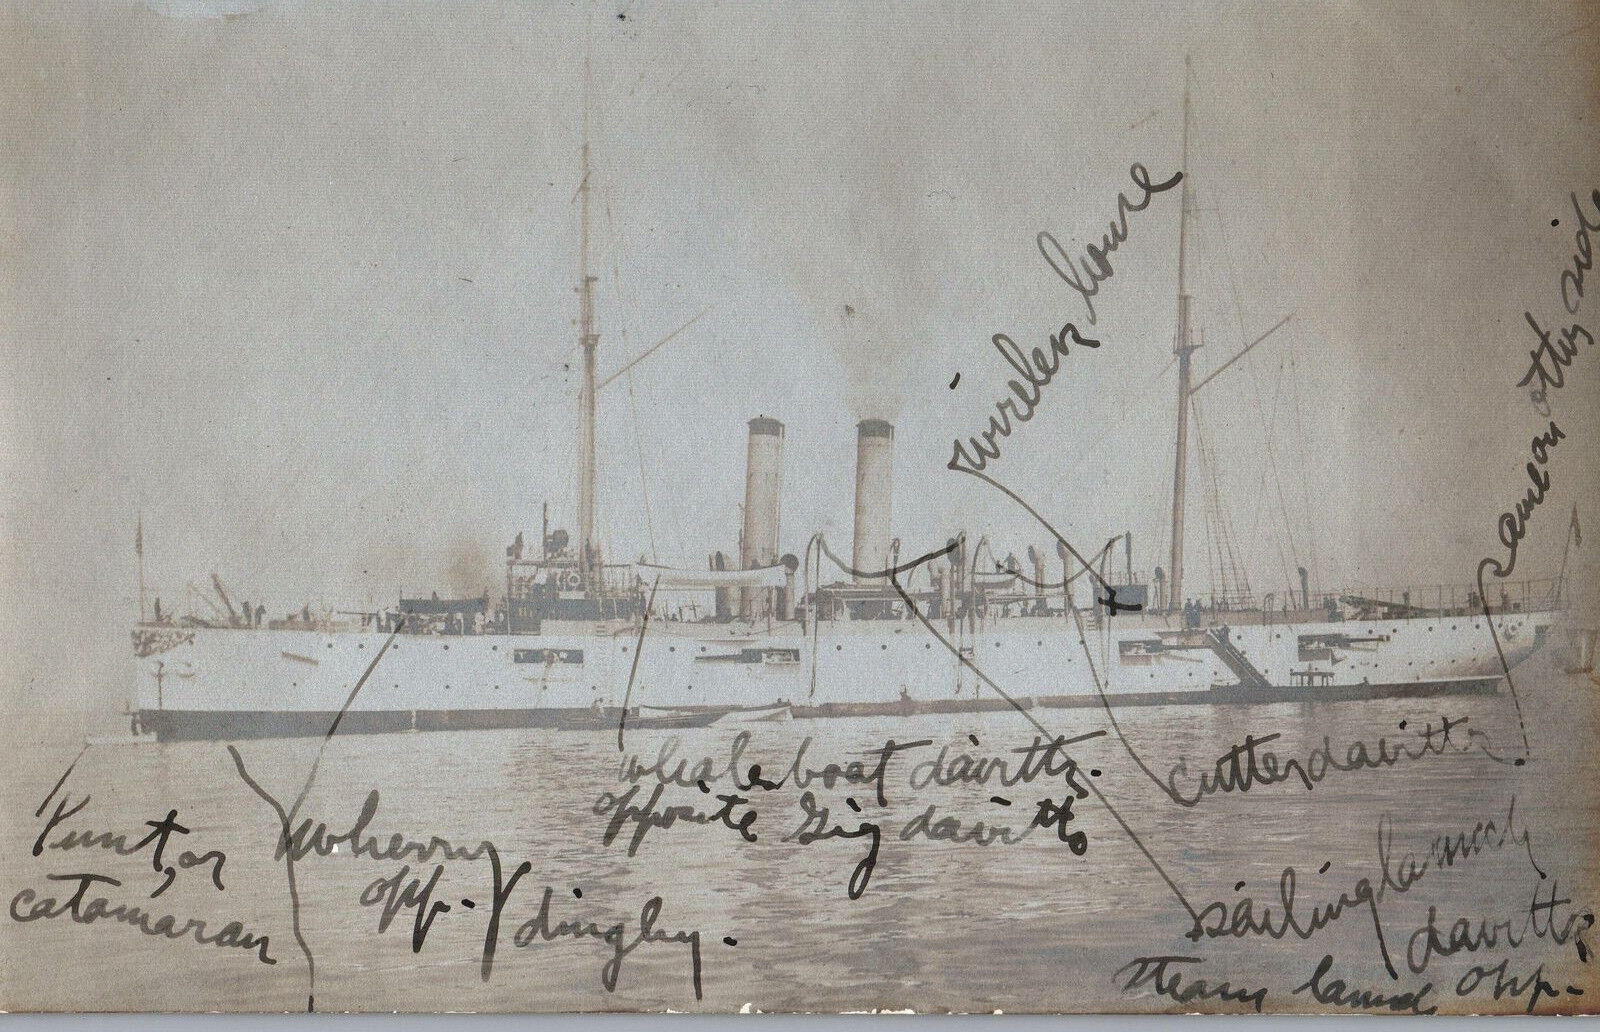 wireless house
same on other side
whale boat davitts.
opposite Gig davitts
cutter davitts
Punt, or
catamaran
wherry
opp. dinghy.
sailing launch
davitts
steam launch opp.